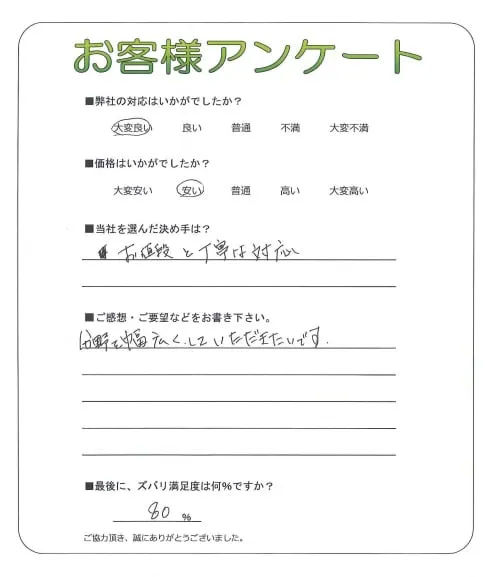 お客様アンケート
■弊社の対応はいかがでしたか？
大変良い 良い 普通 不満 大変不満
■価格はいかがでしたか？
大変安い 安い 普通 高い 大変高い
■当社を選んだ決め手は？
お値段と丁寧な対応
■ご感想・ご要望などをお書き下さい。
分野を幅広くしていただきたいです.
■最後に、ズバリ満足度は何%ですか？
80 %
ご協力頂き、誠にありがとうございました。